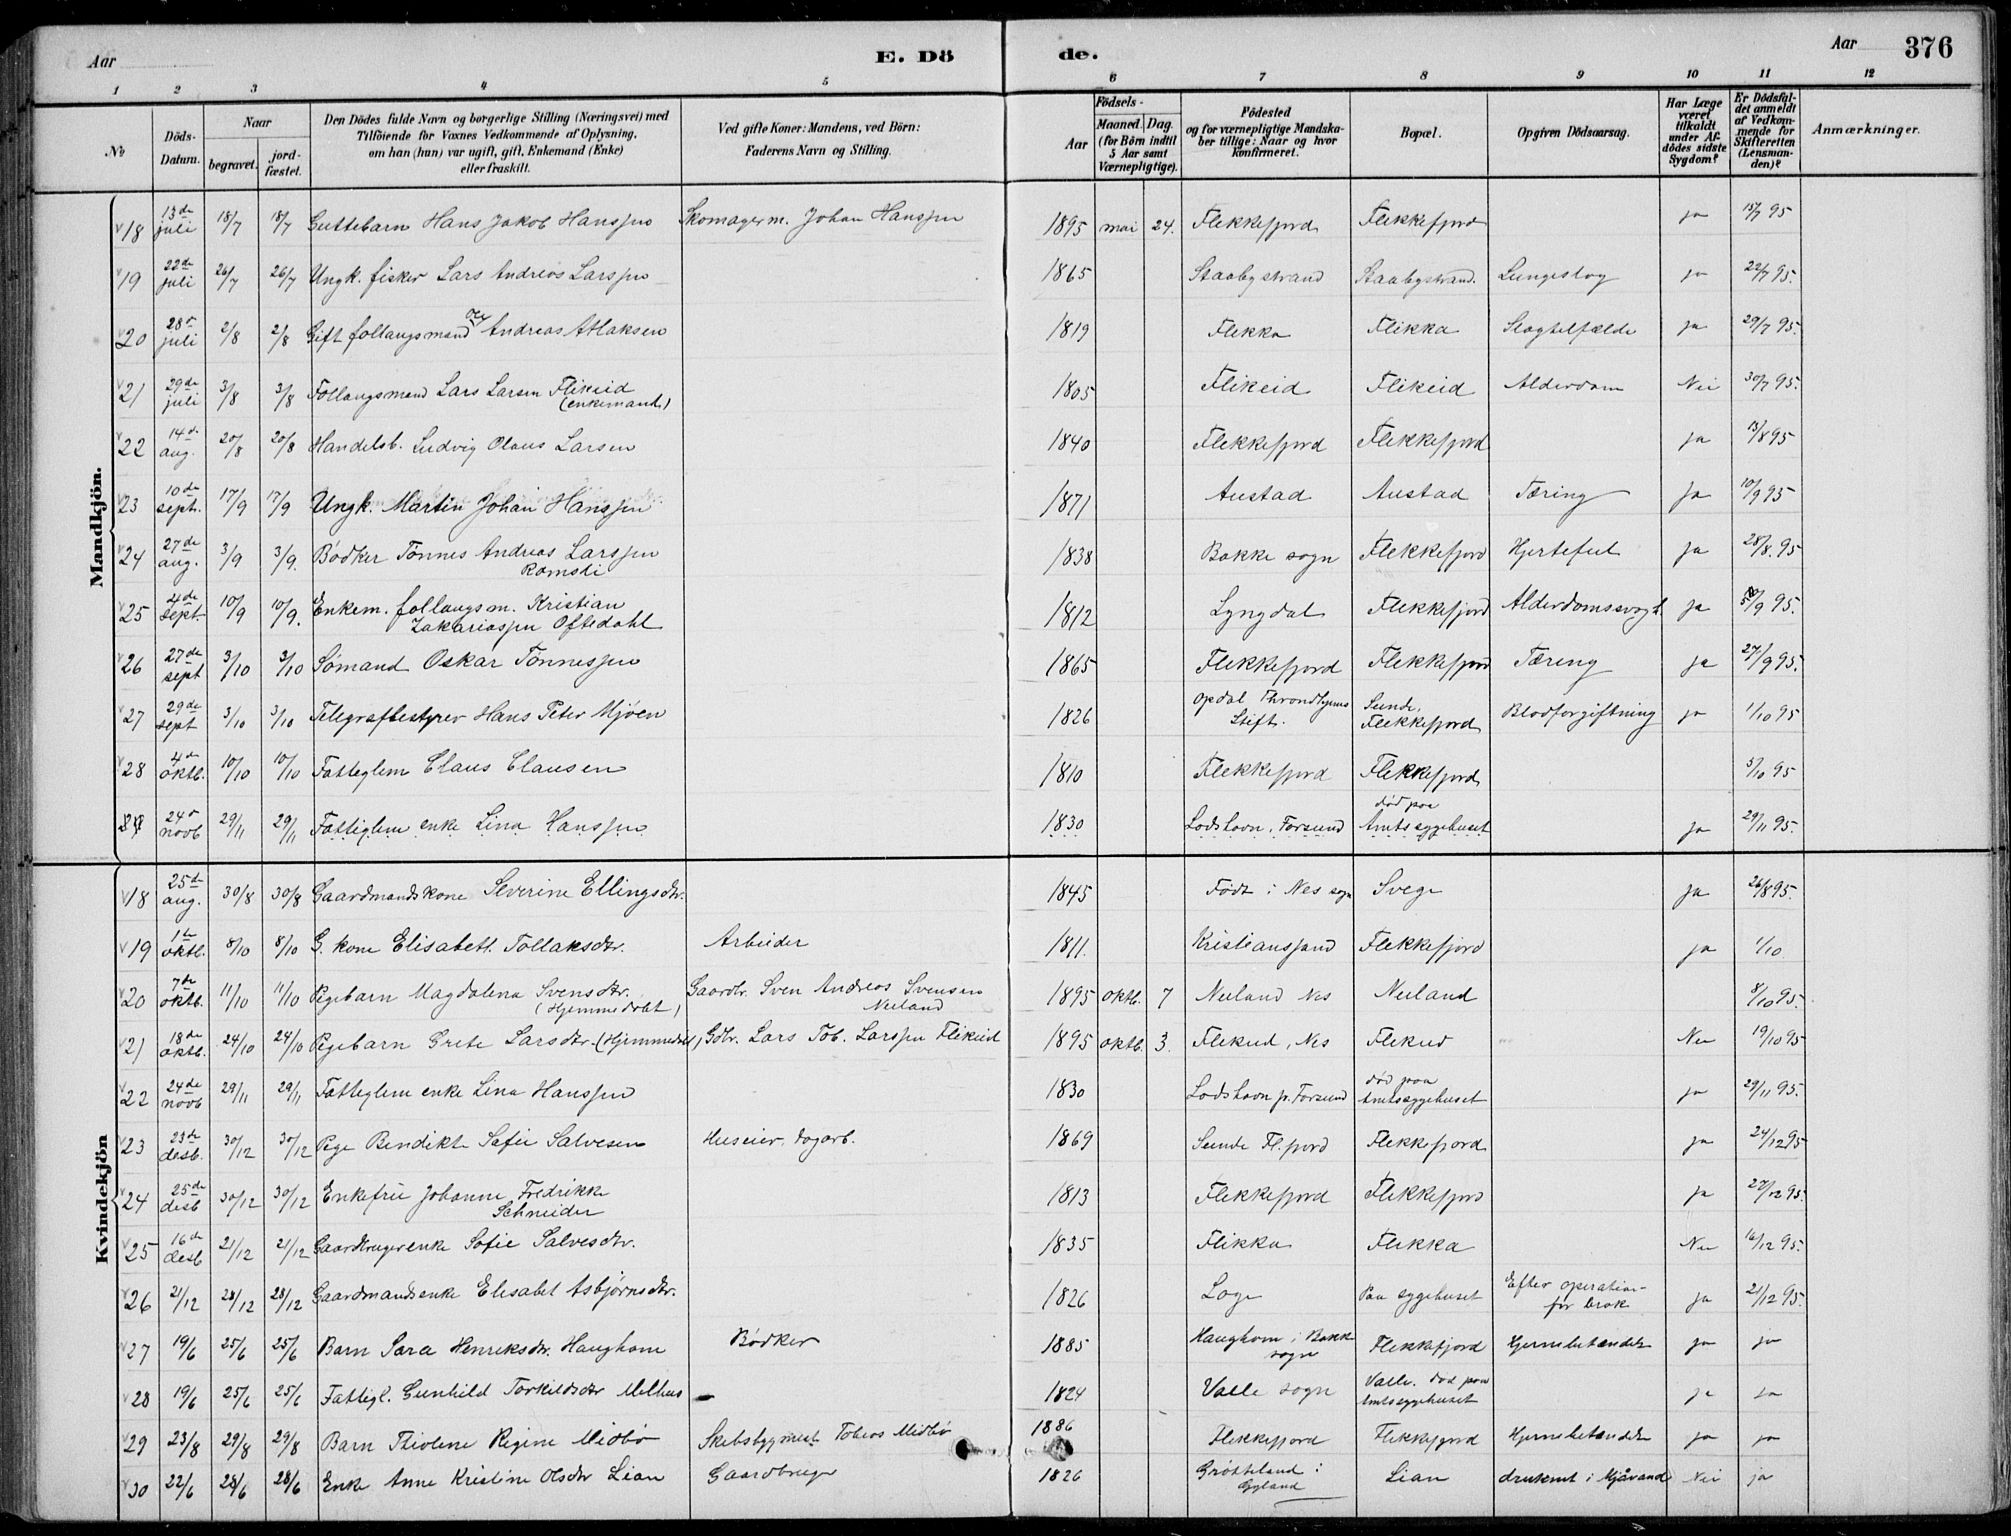 Aar
E. Dö
de.
Aar
376
1 2 3 4 5 6 7 8 9 10 11 12
No
Döds-Datum.
Naar
begravet.
jordfæstet.
Den Dödes fulde Navn og borgerlige Stilling (Næringsvei) med
Tilföiende for Voxnes Vedkommende af Oplysning,
om han (hun) var ugift, gift, Enkemand (Enke)
eller fraskilt.
Ved gifte Koner: Mandens, ved Börn:
Faderens Navn og Stilling.
Födsels-
Aar
Maaned. Dag.
(for Börn indtil
5 Aar samt
Værnepligtige).
Födested
og for værnepligtige Mandska-
ber tillige: Naar og hvor
konfirmeret.
Bopæl.
Opgiven Dödsaarsag.
Har Læge
været
tilkaldt
under Af-
dödes sidste
Sygdom?
Er Dödsfal-
det anmeldt
af Vedkom-
mende for
Skifteretten
(Lensman-
den)?
Anmærkninger.
Mandkjön.
18 13de juli 18/7 18/7 Guttebarn Hans Jakob Hanssen Skomagerm. Johan Hanssen 1895 mai 24. Flekkefjord Flekkefjord ja 15/7 95
19 22de juli 26/7 26/7 Ungk. fisker Lars Andreas Larssen 1865 Staabystrand Staabystrand. Lungeslag ja 22/7 95.
20 28de juli 2/8 2/8 Gift follaugsmand Ole Andreas Atlaksen 1819 Flikka Flikka Slagtilfælde ja 29/7 95.
21 29de juli 3/8 3/8 Follaugsmand Lars Larsen Flikeid (enkemand) 1805 Flikeid Flikeid Alderdom Nei 30/7 95.
22 14de aug. 20/8 20/8 Handelsb. Ludvig Olaus Larsen 1840 Flekkefjord Flekkefjord ja 15/8 95
23 10de sept. 17/9 17/9 Ungk. Martin Johan Hanssen 1871 Austad Austad Tæring ja 10/9 95
24 27de aug. 3/9 3/9. Bödker Tönnes Andreas Larssen Romsli 1838 Bakke sogn Flekkefjord Hjertefeil ja 28/8. 95
25 4de sept. 10/9 10/9. Enkem. follaugsm. Kristian Zakariassen Oftedahl 1812 Lyngdal Flekkefjord Alderdomssvagh. ja 5/9 95.
26 27de sept 3/10 3/10 Sömand Oskar Tönnessen 1865 Flekkefjord Flekkefjord Tæring ja 27/9 95.
27 29de sept 3/10 3/10 Telegrafbestyrer Hans Peter Mjöen 1826 Opdal Throndhjems Stift. Sunde, Flekkefjord Blodforgiftning ja 1/10 95
28 4de oktb. 10/10 10/10 Fatteglem Claus Clausen 1810 Flekkefjord Flekkefjord 5/10 95
24de novb 29/11 29/11 Fatteglem enke Lina Hanssen 1830 Lodshavn, Farsund død paa Amtssygehuset ja 29/11 95.
Kvindekjön
18 25de aug. 30/8 30/8 Gaardmandskone Severine Ellingsdtr. 1845 Födt i Nes sogn Svege ja 26/8 95.
19 1ste oktb. 8/10 8/10 G. kone Elisabeth Tollaksdtr. Arbeider 1811. Kristianssand Flekkefjord ja 1/10
20 7de oktb. 11/10 11/10 Pigebarn Magdalena Svensdtr. (Hjemmedöbt) Gaardbr. Sven Andreas Svensen Neiland 1895 oktb. 7 Neiland Nes Neiland 8/10 95.
21 18de oktb. 24/10 24/10 Pigebarn Grete Larsdtr. (Hjemmedöbt) Gdbr. Lars Tob. Larssen Flikeid 1895 oktb. 3. Flikeid, Nes Flikeid Nei 19/10 95
22 24de novb 29/11 29/11 Fatteglem enke Lina Hanssen 1830 Lodshavn p. Farsund død paa Amtssygehuset ja 29/11 95.
23 23de desb. 30/12 30/12 Pige Bendikte Sofie Salvesen Huseier, dagarb. 1869 Sunde Fl.fjord Flekkefjord ja 24/12 95
24 25de desb 30/12 30/12 Enkefru Johanne Fredrikke Schneider 1813 Flekkefjord Flekkefjord ja 27/12 95.
25 16de desb 21/12 21/12 Gaardbrugerenke Sofie Salvesdtr. 1835 Flikka Flikka Nei 16/12 95.
26 21/12 28/12 28/12 Gaardmandsenke Elisabet Asbjørnsdtr. 1826 Loge Paa sygehuset Efter operation for brok ja 21/12 95.
27 19/6 25/6 25/6 Barn Sara Henriksdtr. Haughom Bödker 1885 Haughom i Bakke sogn Flekkefjord Hjernebetændelse ja ja
28 19/6 25/6 25/6 Fattigl. Gunhild Torkildsdtr Melhus — 1824 Valle sogn Valle. død paa Amtssygehuset ja ja
29 23/8 29/8 29/8 Barn Tholene Regine Midbö Skibsbygmest. Tobias Midbö 1886 Flekkefjord Flekkefjord Hjernebetændelse ja ja
30 22/6 28/6 28/6 Enke Anne Kristine Olsdtr Lian Gaardbruger 1826 Grötteland i Gyland Lian druknet i Mjåvand Nei ja